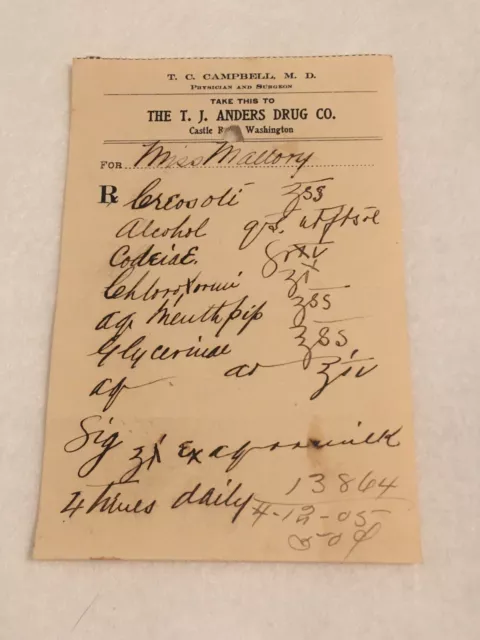 T. C. CAMPBELL, M. D.
PHYSICIAN AND SURGEON
TAKE THIS TO
THE T. J. ANDERS DRUG CO.
Castle R Washington
FOR Miss Mallory
℞ Creosoti ʒss
Alcohol q.s. ut ft sol
Codeiae grxv
Chloroformi ʒi
aq Menth pip ʒss
Glycerinae ʒss
aq ad ʒiv
Sig ʒi ex aq or milk
4 times daily
13864
4-12-05